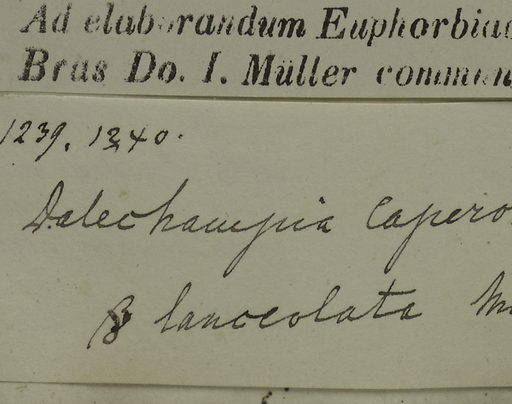 Ad elaborandum Euphorbiac
Bras Do. I. Müller commun
1239, 1240.
Dalechampia capero
β lanceolata M